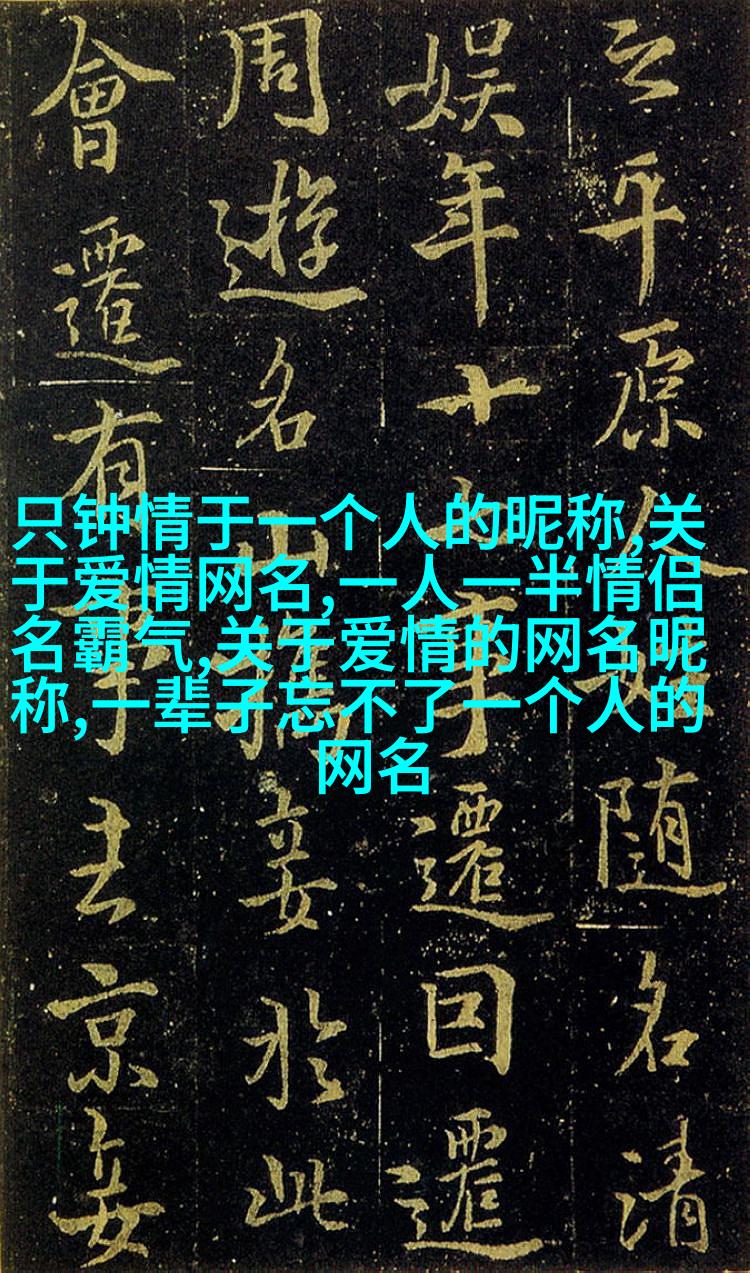 之平原令随名清
娱年十遷回遷
周遊名山於此
會遷有事去京
只钟情于一个人的昵称,关
于爱情网名,一人一半情侣
名霸气,关于爱情的网名昵
称,一辈子忘不了一个人的
网名